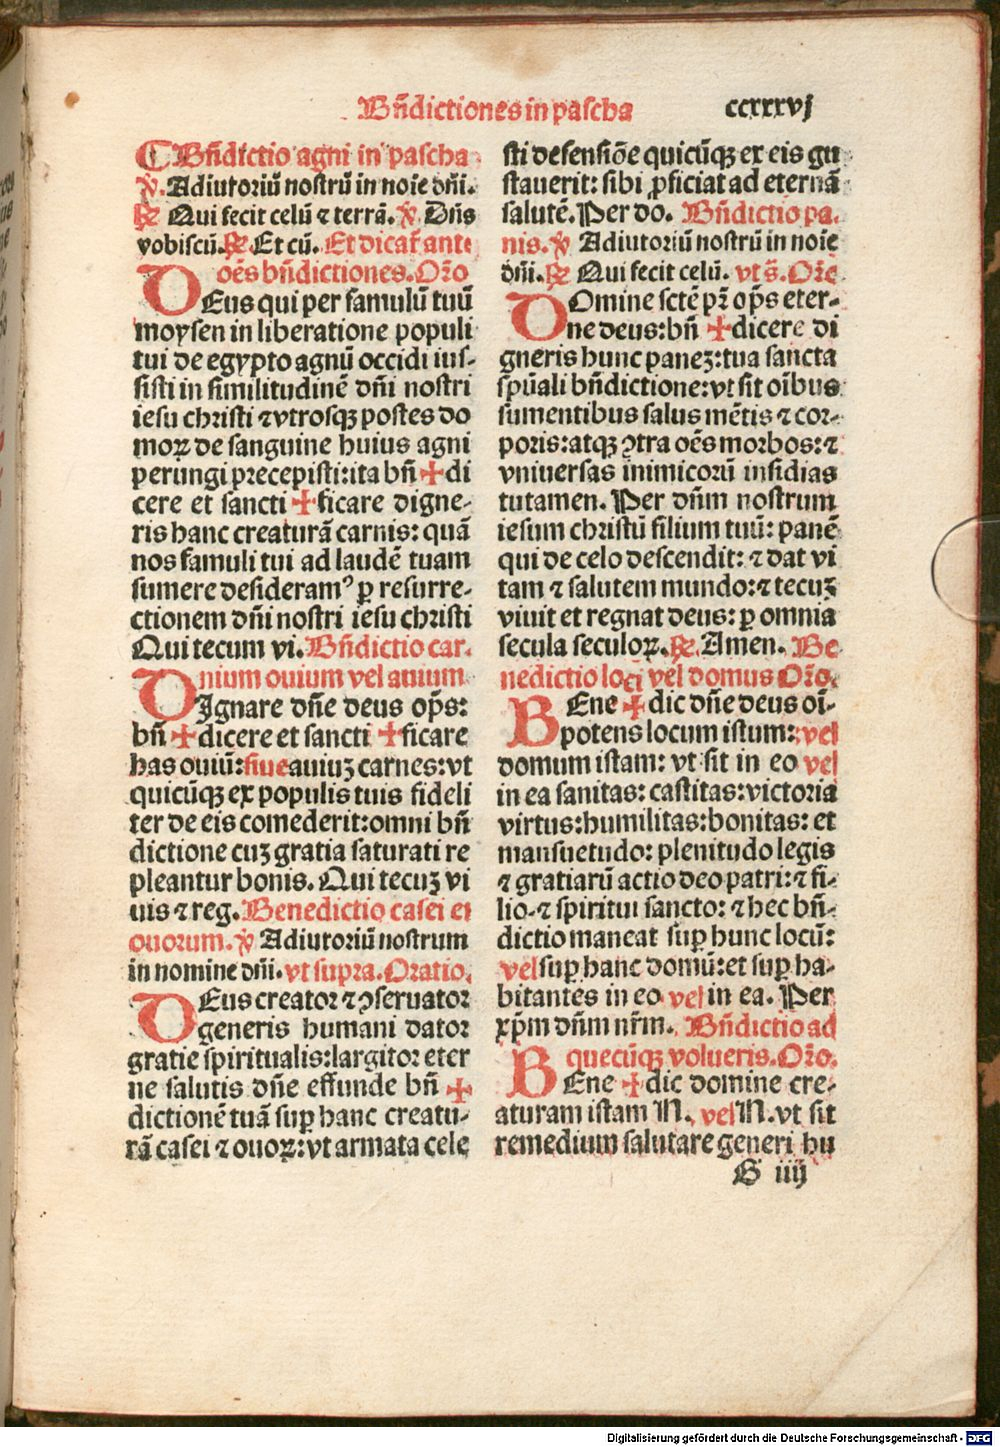 Bñdictiones in pascha ccxxxvj
¶ Bñdictio agni in pascha
℣. Adiutoriū nostrū in noīe dñi.
℟ Qui fecit celū ⁊ terrā. ℣. Dñs
vobiscū. ℟. Et cū. Et dicat̃ ante
oēs bñdictiones. Oꝛ̃o
DEus qui per famulū tuū
moysen in liberatione populi
tui de egypto agnū occidi ius-
sisti in similitudinē dñi nostri
iesu christi ⁊ vtrosqꝫ postes do
moꝝ de sanguine huius agni
perungi precepisti: ita bñ ✠ di
cere et sancti ✠ ficare digne-
ris hanc creaturā carnis: quā
nos famuli tui ad laudē tuam
sumere desideramꝰ ꝑ resurre-
ctionem dñi nostri iesu christi
Qui tecum vi. Bñdictio car-
nium ouium vel auium
DIgnare dñe deus op̄s:
bñ ✠ dicere et sancti ✠ ficare
has ouiū: siue auiuꝫ carnes: vt
quicūqꝫ ex populis tuis fideli
ter de eis comederit: omni bñ
dictione cuꝫ gratia saturati re
pleantur bonis. Qui tecuꝫ vi
uis ⁊ reg. Benedictio casei et
ouorum. ℣ Adiutoriū nostrum
in nomine dñi. vt supra. Oratio.
DEus creator ⁊ ꝯseruator
generis humani dator
gratie spiritualis: largitor eter
ne salutis dñe effunde bñ ✠
dictionē tuā suꝑ hanc creatu-
rā casei ⁊ ouoꝝ: vt armata cele
sti defensiōe quicūqꝫ ex eis gu
stauerit: sibi ꝓficiat ad eternā
salutē. Per do. Bñdictio pa-
nis. ℣ Adiutoriū nostrū in noīe
dñi. ℟ Qui fecit celū. vt s̄. Oꝛ̃o
DOmine sctē pr̃ op̄s eter-
ne deus: bñ ✠ dicere di
gneris hunc paneꝫ: tua sancta
spūali bñdictione: vt sit oībus
sumentibus salus mētis ⁊ cor-
poris: atqꝫ ꝯtra oēs morbos: ⁊
vniuersas inimicorū insidias
tutamen. Per dñm nostrum
iesum christū filium tuū: panē
qui de celo descendit: ⁊ dat vi
tam ⁊ salutem mundo: ⁊ tecuꝫ
viuit et regnat deus: ꝑ omnia
secula seculoꝝ. ℟. Amen. Be
nedictio loci vel domus Oꝛ̃o.
BEne ✠ dic dñe deus oī-
potens locum istum: vel
domum istam: vt sit in eo vel
in ea sanitas: castitas: victoria
virtus: humilitas: bonitas: et
mansuetudo: plenitudo legis
⁊ gratiarū actio deo patri: ⁊ fi-
lio ⁊ spiritui sancto: ⁊ hec bñ-
dictio maneat suꝑ hunc locū:
vel suꝑ hanc domū: et suꝑ ha-
bitantes in eo vel in ea. Per
xp̄m dñm nr̃m. Bñdictio ad
quecūqꝫ volueris. Oꝛ̃o.
BEne ✠ dic domine cre-
aturam istam N. vel N. vt sit
remedium salutare generi hu
G iiij
Digitalisierung gefördert durch die Deutsche Forschungsgemeinschaft - DFG